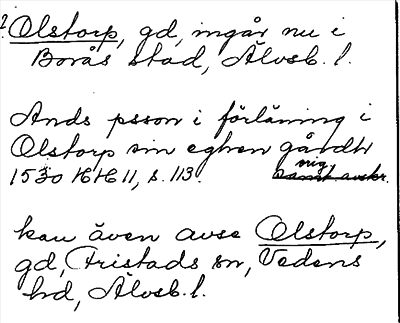 ? Olstorp, gd, ingår nu i
Borås stad, Älvsb. l.
Ands psson i förläning i
Olstorp sin eghen gårdh
orig.
1530 HH 11, s. 113. samt avskr.
kan även avse Olstorp,
gd, Fristads sn, Vedens
hd, Älvsb. l.